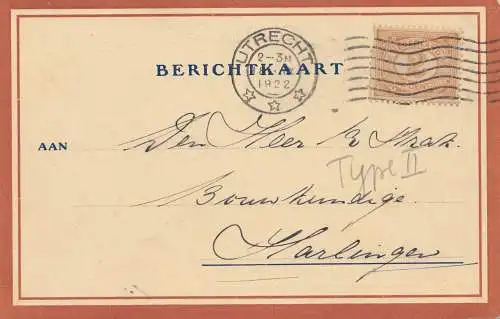 UTRECHT
2-3N
1922
BERICHTKAART
AAN
Den Heer
Strak.
Type II
Bouwkundige.
Harlingen